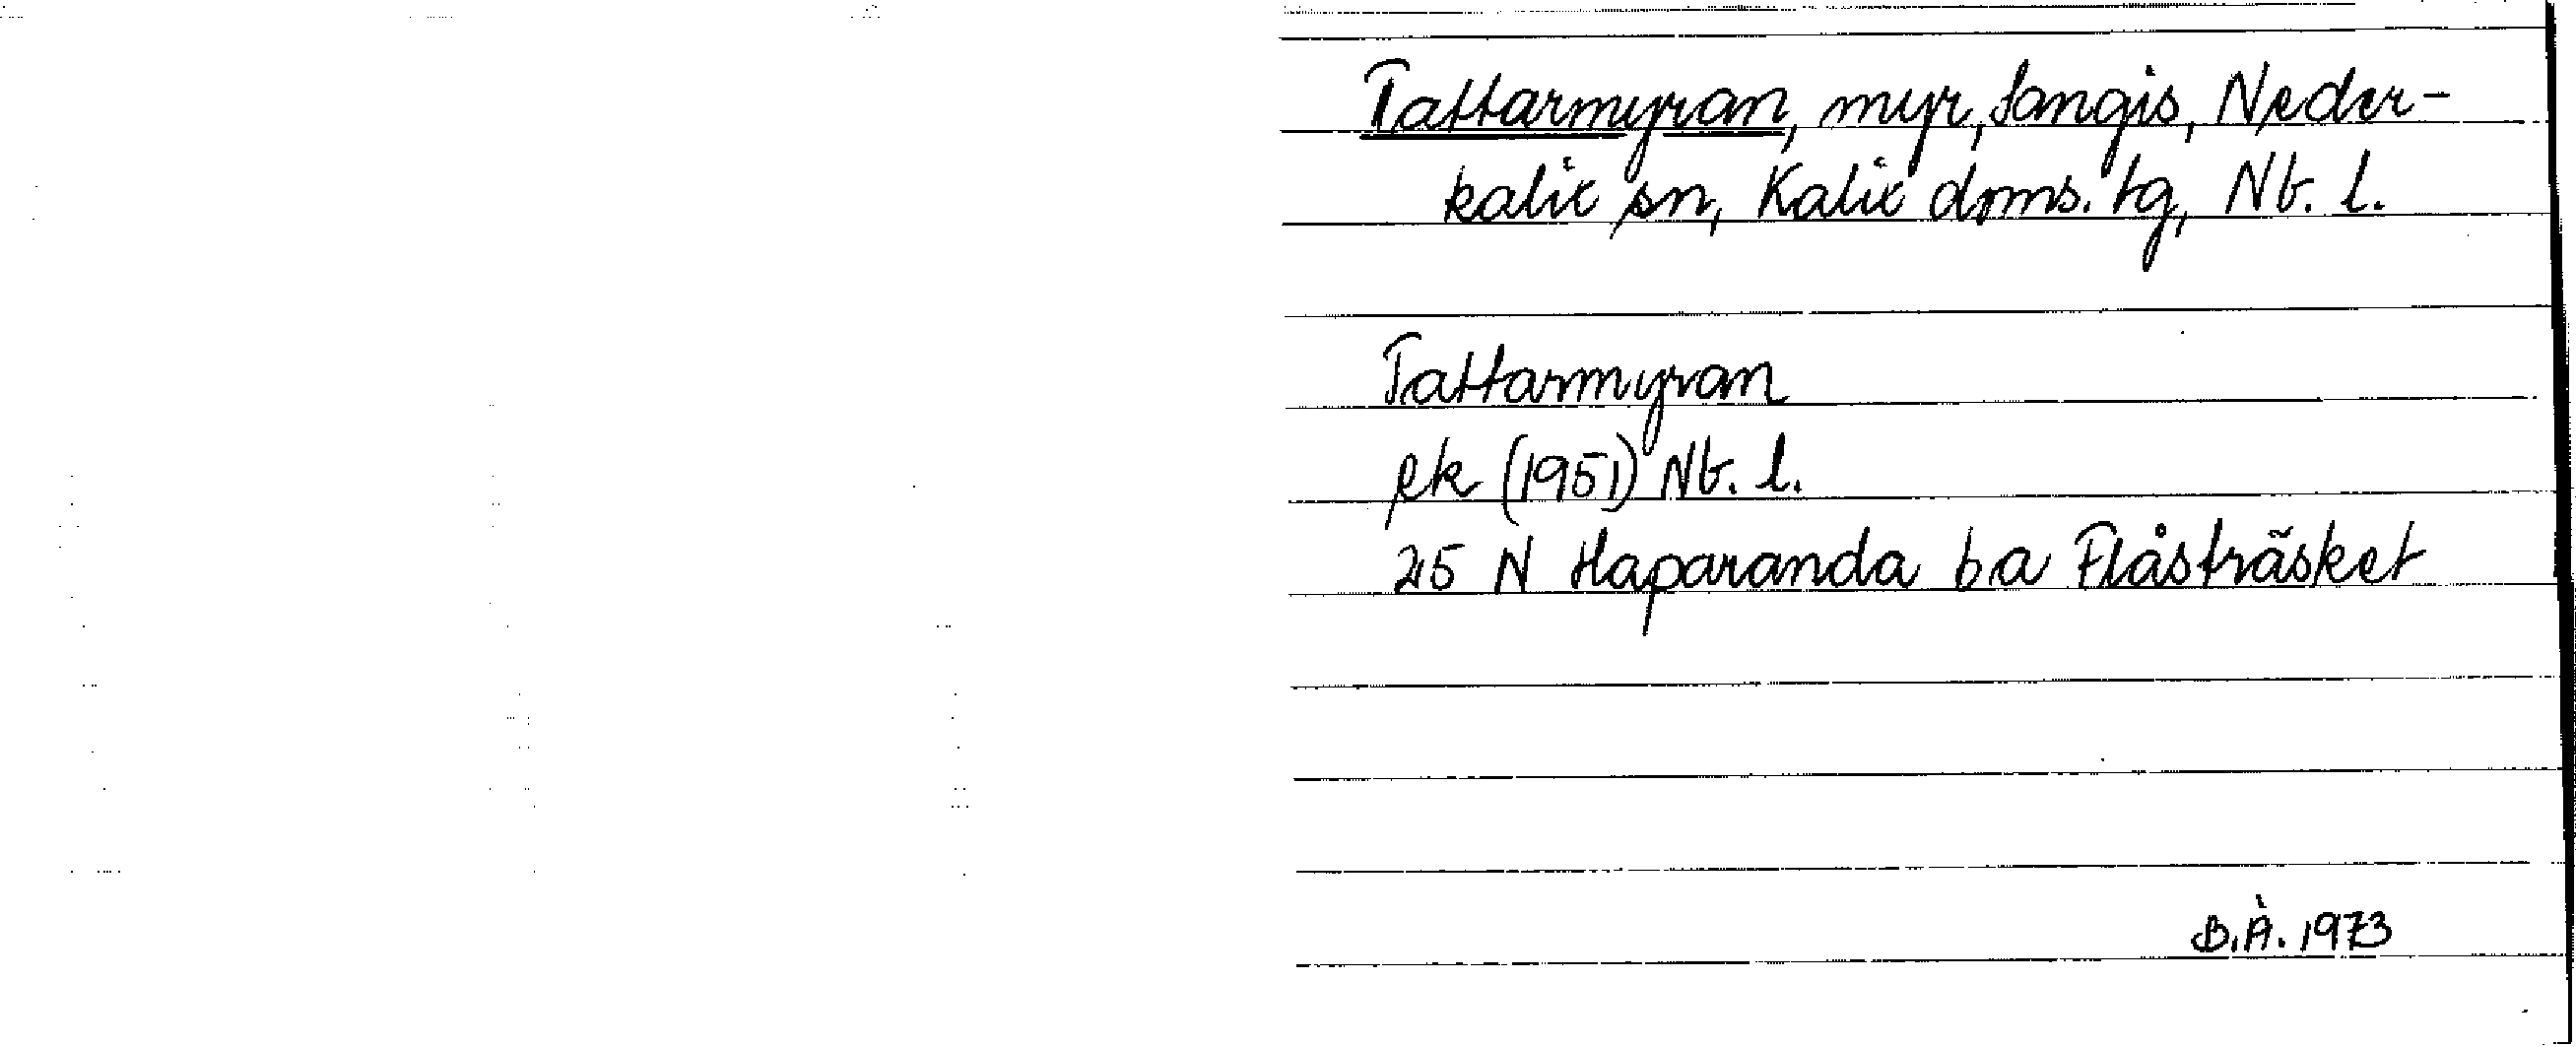 Tattarmyran, myr, Sangis, Neder-
kalix sn, Kalix doms. tg, Nb. l.
Tattarmyran
ek (1951) Nb. l.
25 N Haparanda b a Flåsträsket
B.Å. 1973